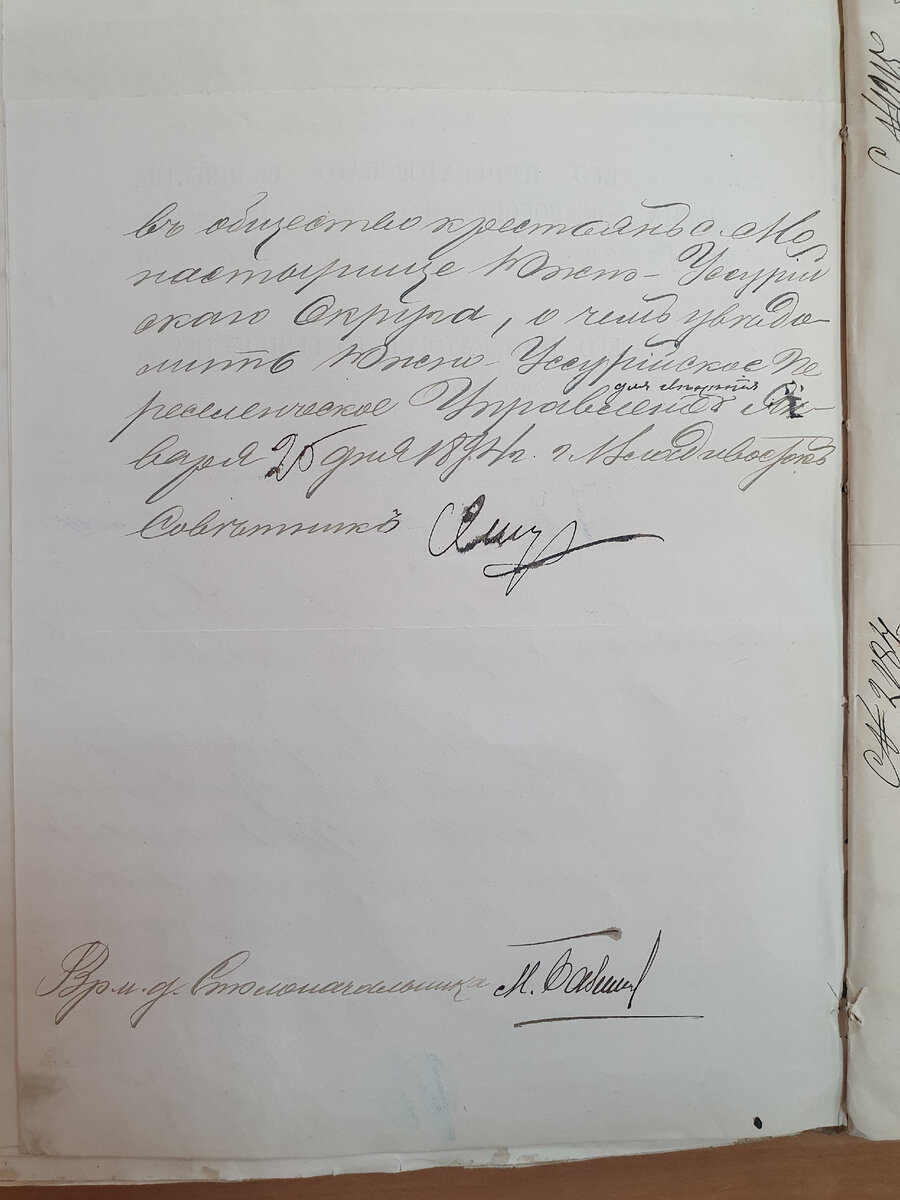 въ общество крестьянъ с. Мо
настырище Южно-Уссурій
скаго Округа, о чемъ увѣдо-
мить Южно-Уссурійское Пе
реселенческое Управленіе Ян-
варя 26 дня 1894 г. г. Владивостокъ
Совѣтникъ
Вр. и. д. Столоначальника М.
С № 2187